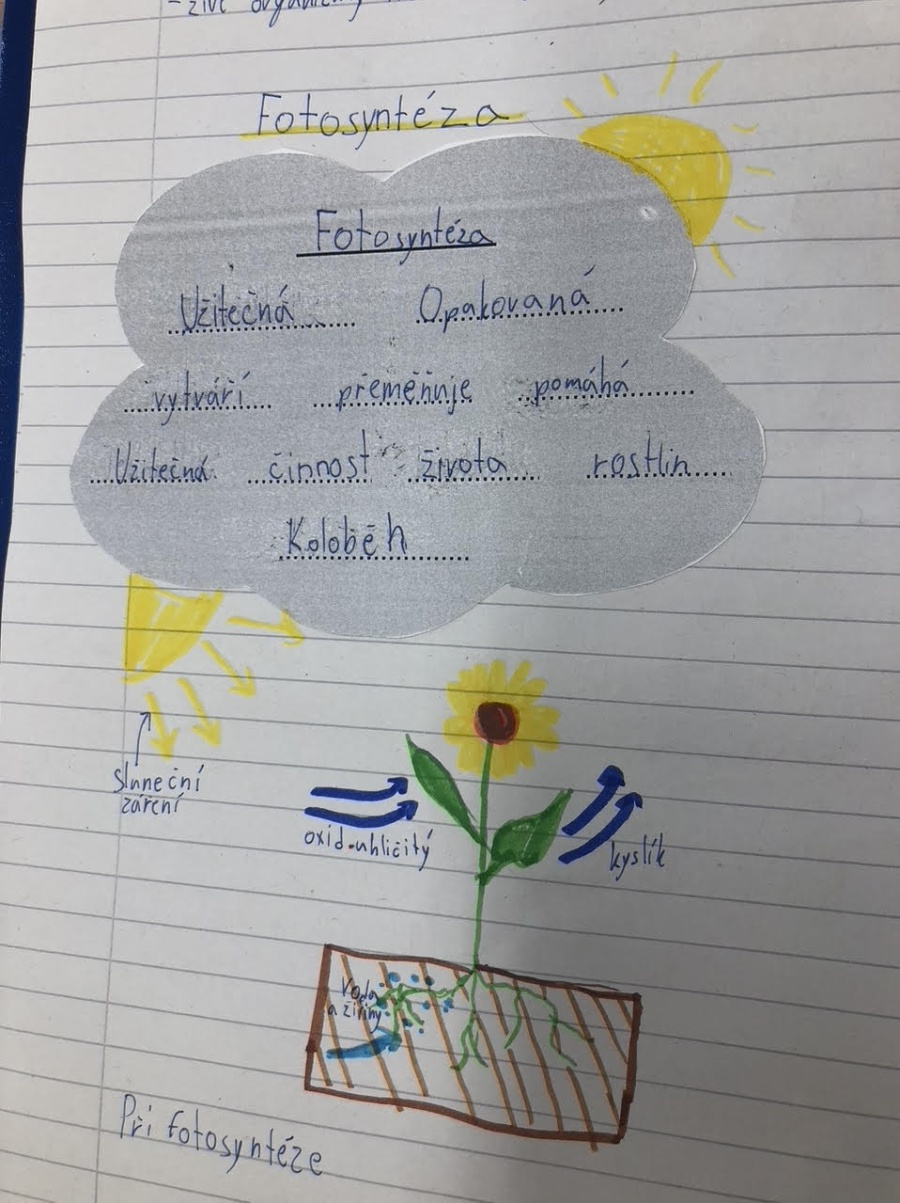 - živé
Fotosyntéza
Fotosyntéza
Užitečná Opakovaná
vytváří přeměňuje pomáhá
Užitečná činnost života rostlin
Koloběh
Sluneční
záření
oxid uhličitý
kyslík
Voda
a živiny
Při fotosyntéze